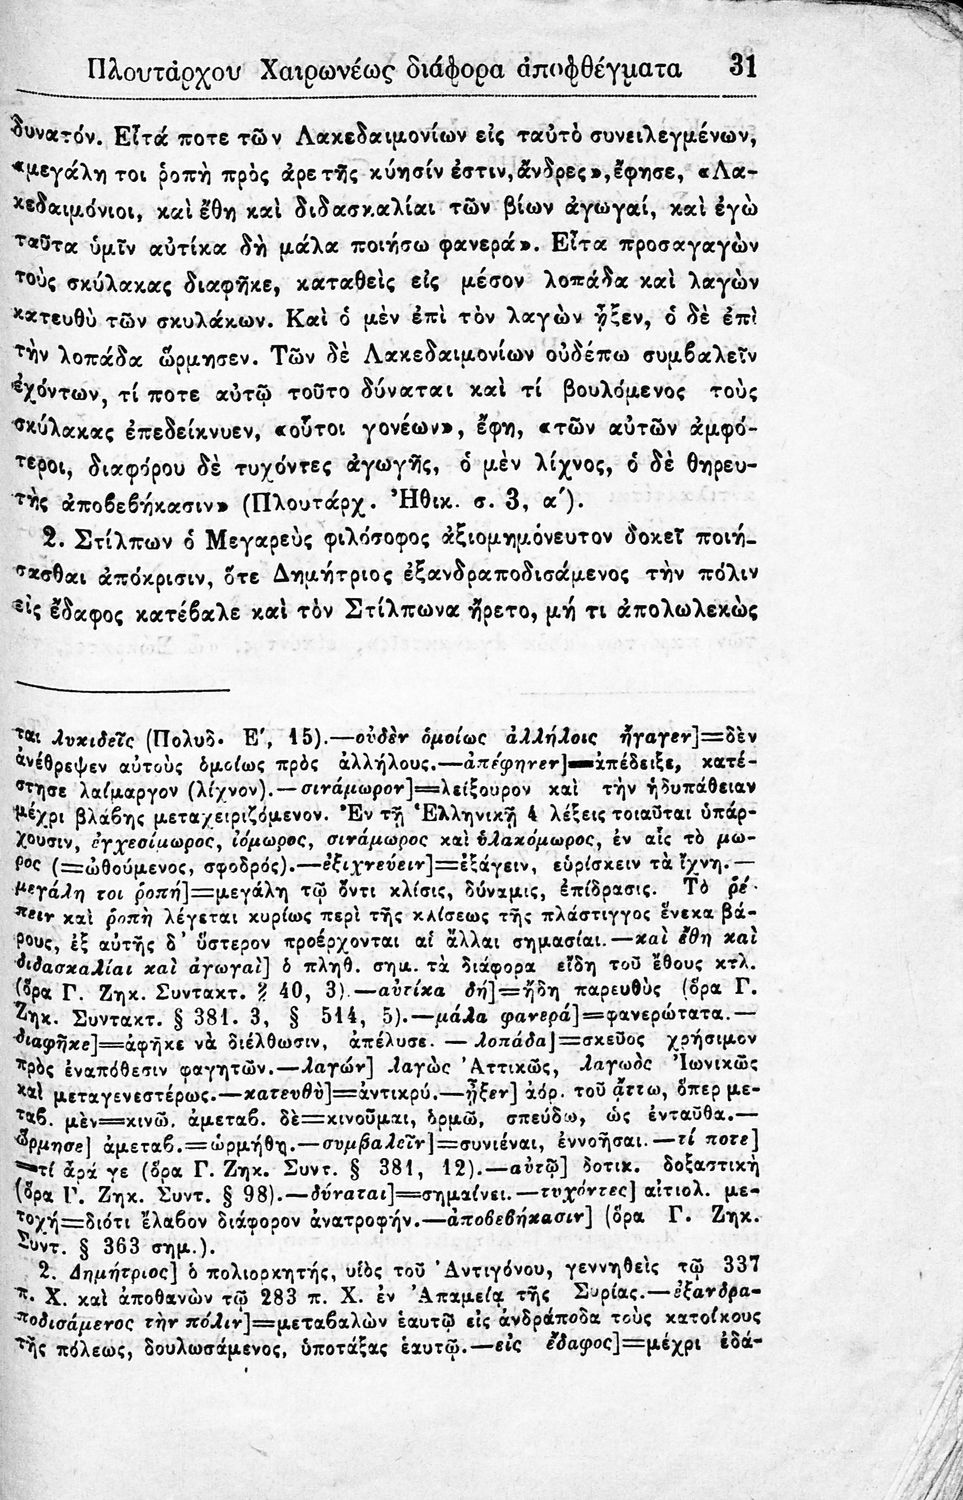 Πλουτάρχου Χαιρωνέως διάφορα ἀποφθέγματα 31
δυνατόν. Εἶτά ποτε τῶν Λακεδαιμονίων εἰς ταὐτὸ συνειλεγμένων,
«μεγάλη τοι ῥοπὴ πρὸς ἀρετῆς κύησίν ἐστιν, ἄνδρες», ἔφησε, «Λα-
κεδαιμόνιοι, καὶ ἔθη καὶ διδασκαλίαι τῶν βίων ἀγωγαί, καὶ ἐγὼ
ταῦτα ὑμῖν αὐτίκα δὴ μάλα ποιήσω φανερά». Εἶτα προσαγαγὼν
τοὺς σκύλακας διαφῆκε, καταθεὶς εἰς μέσον λοπάδα καὶ λαγὼν
κατευθὺ τῶν σκυλάκων. Καὶ ὁ μὲν ἐπὶ τὸν λαγὼν ᾖξεν, ὁ δὲ ἐπὶ
τὴν λοπάδα ὥρμησεν. Τῶν δὲ Λακεδαιμονίων οὐδέπω συμβαλεῖν
ἐχόντων, τί ποτε αὐτῷ τοῦτο δύναται καὶ τί βουλόμενος τοὺς
σκύλακας ἐπεδείκνυεν, «οὗτοι γονέων», ἔφη, «τῶν αὐτῶν ἀμφό-
τεροι, διαφόρου δὲ τυχόντες ἀγωγῆς, ὁ μὲν λίχνος, ὁ δὲ θηρευ-
τὴς ἀποβεβήκασιν» (Πλουτάρχ. Ἠθικ. σ. 3, α΄).
2. Στίλπων ὁ Μεγαρεὺς φιλόσοφος ἀξιομημόνευτον δοκεῖ ποιή-
σασθαι ἀπόκρισιν, ὅτε Δημήτριος ἐξανδραποδισάμενος τὴν πόλιν
εἰς ἔδαφος κατέβαλε καὶ τὸν Στίλπωνα ἤρετο, μή τι ἀπολωλεκὼς
ται λυκιδεῖς (Πολυδ. Ε΄, 15).—οὐδὲν ὁμοίως ἀλλήλοις ἤγαγεν]=δὲν
ἀνέθρεψεν αὐτοὺς ὁμοίως πρὸς ἀλλήλους.—ἀπέφηνεν]=ἀπέδειξε, κατέ-
στησε λαίμαργον (λίχνον).—σινάμωρον]=λείξουρον καὶ τὴν ἡδυπάθειαν
μέχρι βλάβης μεταχειριζόμενον. Ἐν τῇ Ἑλληνικῇ 4 λέξεις τοιαῦται ὑπάρ-
χουσιν, ἐγχεσίμωρος, ἰόμωρος, σινάμωρος καὶ ὑλακόμωρος, ἐν αἷς τὸ μω-
ρος (=ὠθούμενος, σφοδρός).—ἐξιχνεύειν]=ἐξάγειν, εὑρίσκειν τὰ ἴχνη.—
μεγάλη τοι ῥοπή]=μεγάλη τῷ ὄντι κλίσις, δύναμις, ἐπίδρασις. Τὸ ῥέ-
πειν καὶ ῥοπὴ λέγεται κυρίως περὶ τῆς κλίσεως τῆς πλάστιγγος ἕνεκα βά-
ρους, ἐξ αὐτῆς δ' ὕστερον προέρχονται αἱ ἄλλαι σημασίαι.—καὶ ἔθη καὶ
διδασκαλίαι καὶ ἀγωγαί] ὁ πληθ. σημ. τὰ διάφορα εἴδη τοῦ ἔθους κτλ.
(ὅρα Γ. Ζηκ. Συντακτ. § 40, 3).—αὐτίκα δή]=ἤδη παρευθὺς (ὅρα Γ.
Ζηκ. Συντακτ. § 381. 3, § 514, 5).—μάλα φανερά]=φανερώτατα.—
διαφῆκε]=ἀφῆκε νὰ διέλθωσιν, ἀπέλυσε. — λοπάδα]=σκεῦος χρήσιμον
πρὸς ἐναπόθεσιν φαγητῶν.—λαγών] λαγὼς Ἀττικῶς, λαγωὸς Ἰωνικῶς
καὶ μεταγενεστέρως.—κατευθὺ]=ἀντικρύ.—ᾖξεν] ἀόρ. τοῦ ᾄττω, ὅπερ με-
ταβ. μὲν=κινῶ. ἀμεταβ. δὲ=κινοῦμαι, ὁρμῶ, σπεύδω, ὡς ἐνταῦθα.—
ὥρμησε] ἀμεταβ.=ὡρμήθη.—συμβαλεῖν]=συνιέναι, ἐννοῆσαι.—τί ποτε]
=τί ἆρά γε (ὅρα Γ. Ζηκ. Συντ. § 381, 12).—αὐτῷ] δοτικ. δοξαστικὴ
(ὅρα Γ. Ζηκ. Συντ. § 98).—δύναται]=σημαίνει.—τυχόντες] αἰτιολ. με-
τοχή=διότι ἔλαβον διάφορον ἀνατροφήν.—ἀποβεβήκασιν] (ὅρα Γ. Ζηκ.
Συντ. § 363 σημ.).
2. Δημήτριος] ὁ πολιορκητής, υἱὸς τοῦ Ἀντιγόνου, γεννηθεὶς τῷ 337
π. Χ. καὶ ἀποθανὼν τῷ 283 π. Χ. ἐν Ἀπαμείᾳ τῆς Συρίας.—ἐξανδρα-
ποδισάμενος τὴν πόλιν]=μεταβαλὼν ἑαυτῷ εἰς ἀνδράποδα τοὺς κατοίκους
τῆς πόλεως, δουλωσάμενος, ὑποτάξας ἑαυτῷ.—εἰς ἔδαφος]=μέχρι ἐδά-